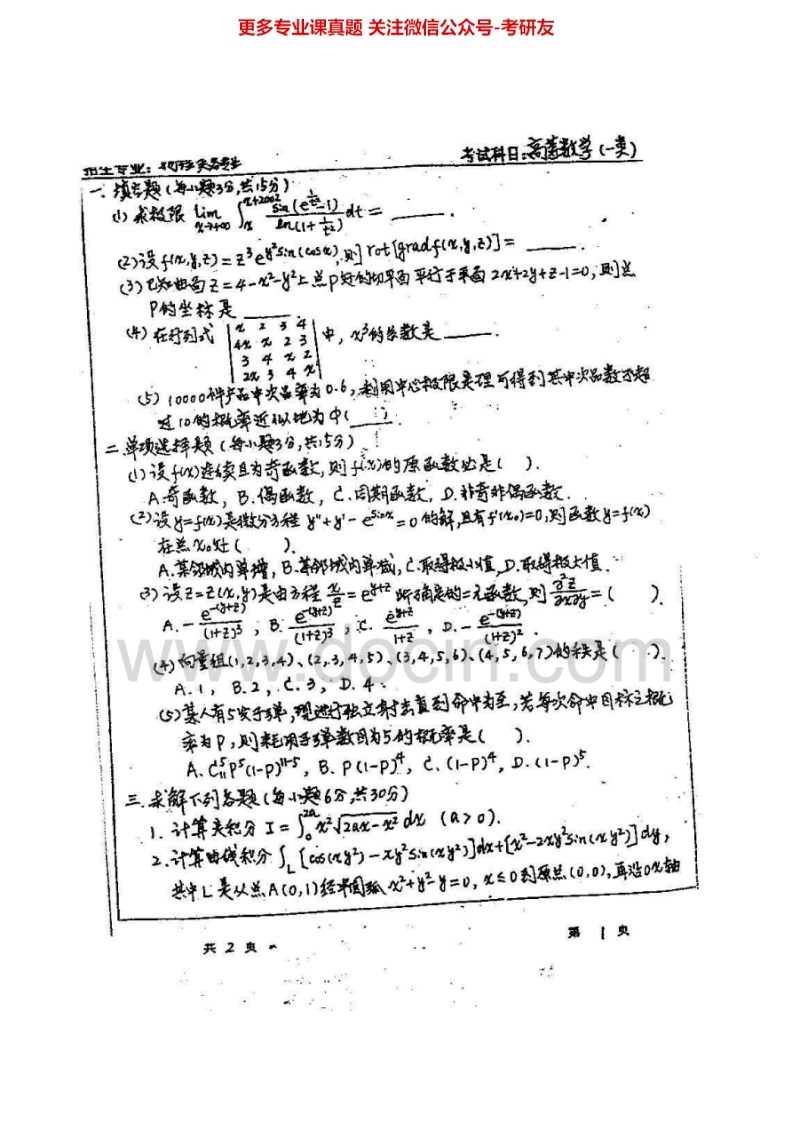 更多专业课真题 关注微信公众号-考研友
招生专业: 物理类各专业 考试科目:高等数学(一类)
一. 填空题(每小题3分,共15分)
(1) 求极限 lim_{x→+∞} ∫_x^{x+2002} sin(e^{1/t²}-1)/ln(1+1/t²) dt = ____.
(2) 设f(x,y,z)=z³e^{y²}sin(cosx),则 rot[gradf(x,y,z)] = ____.
(3) 已知曲面 Z=4-x²-y²上点P处的切平面平行于平面2x+2y+z-1=0,则点
P的坐标是 ____
(4) 在行列式 |x 2 3 4; 4x x 2 3; 3 4 x 2; 2x 3 4 x| 中, x³的系数是 ____.
(5) 10000件产品中次品率为0.6,利用中心极限定理可得到其中次品数不超
过10的概率近似地为Φ( ).
二.单项选择题(每小题3分,共15分)
(1)设f(x)连续且为奇函数,则f(x)的原函数必是( ).
A.奇函数, B.偶函数, C.周期函数, D.非奇非偶函数.
(2)设y=f(x)是微分方程 y''+y'-e^{sinx}=0的解,且有f'(x₀)=0,则函数y=f(x)
在点x₀处( ).
A.某邻域内单增, B.某邻域内单减, C.取得极小值, D.取得极大值.
(3) 设z=z(x,y)是由方程 x/z=e^{y+z}所确定的二元函数,则 ∂²z/∂x∂y=( ).
A. -e^{-(y+z)}/(1+z)³, B. e^{-(y+z)}/(1+z)³, C. e^{y+z}/1+z, D. -e^{-(y+z)}/(1+z)².
www.docin.com
(4)向量组(1,2,3,4)、(2,3,4,5)、(3,4,5,6)、(4,5,6,7)的秩是( ).
A.1, B.2, C.3, D.4.
(5)某人有5发子弹,现进行独立射击直到命中为至,若每次命中目标之概
率为P,则耗用子弹数目为5的概率是( ).
A. C₁₁⁵P⁵(1-P)^{11-5}, B. P(1-P)⁴, C. (1-P)⁴, D. (1-P)⁵.
三.求解下列各题(每小题6分,共30分)
1. 计算定积分 I=∫₀^{2a} x²√(2ax-x²) dx (a>0).
2.计算曲线积分 ∫_L [cos(xy²)-xy²sin(xy²)]dx+[x²-2xy²sin(xy²)]dy,
其中L是从点A(0,1)经半圆弧x²+y²-y=0, x≤0到原点(0,0),再沿Ox轴
共 2 页 第 1 页